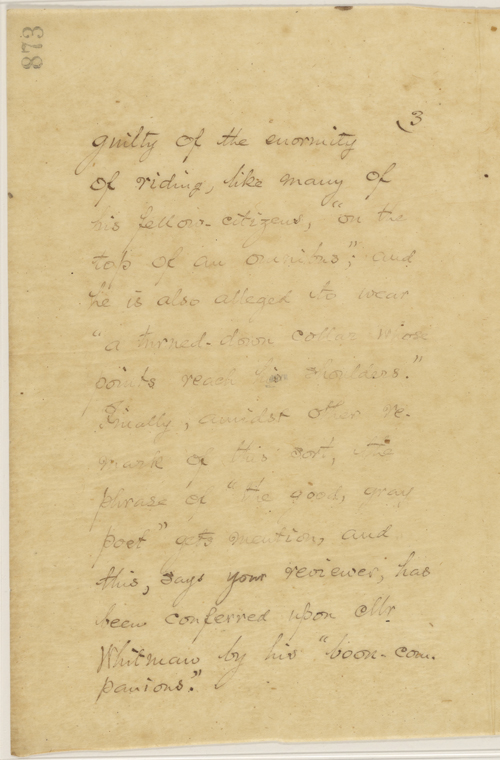 873
3
guilty of the enormity
of riding, like many of
his fellow-citizens, "on the
top of an omnibus"; and
he is also alleged to wear
"a turned-down collar whose
points reach his shoulders."
Finally, amidst other re-
mark of this sort, the
phrase of "the good, gray
poet" gets mention, and
this, says your reviewer, has
been conferred upon Mr.
Whitman by his "boon-com-
panions."